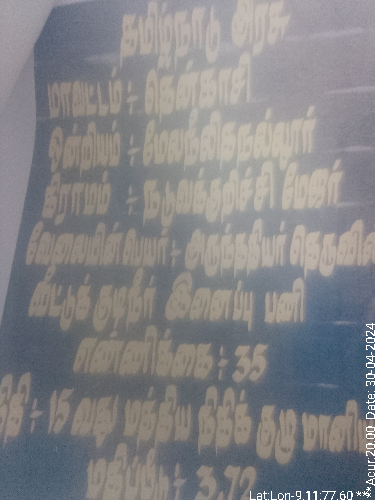 தமிழ்நாடு அரசு
மாவட்டம் :- தென்காசி
ஒன்றியம் :- மேலநீலிதநல்லூர்
கிராமம் :- நடுவக்குறிச்சி மேஜர்
வேலையின் பெயர் :- அருந்ததியர் தெருவில்
வீட்டுக் குடிநீர் இணைப்பு பணி
எண்ணிக்கை :- 35
நிதி :- 15 வது மத்திய நிதிக் குழு மானிய
மதிப்பீடு :- 3.72
Lat:Lon-9.11:77.60 ***Acur:20.00 Date: 30-04-2024